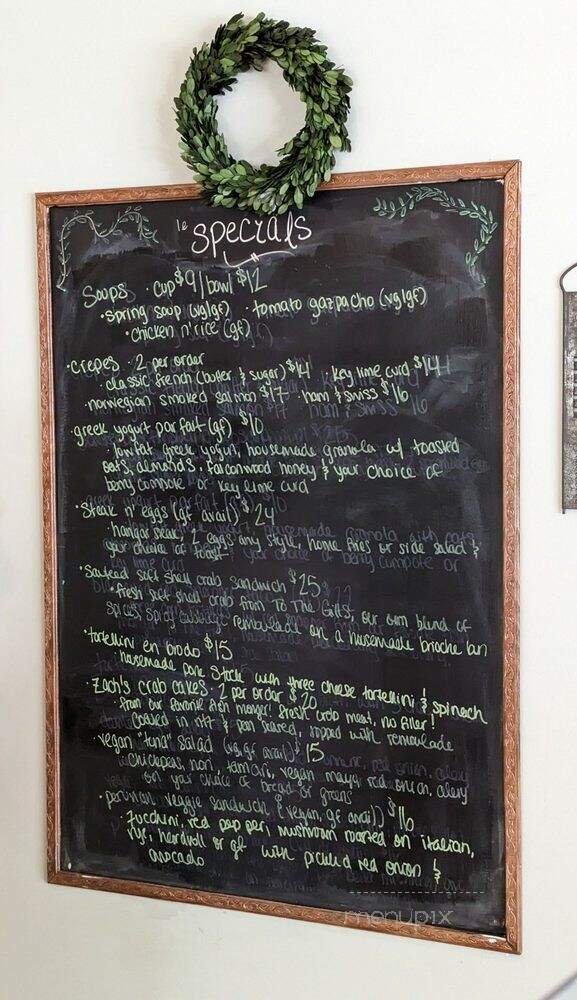 le specials
Soups · cup $9/bowl $12
· spring soup (vg/gf) · tomato gazpacho (vg/gf)
· chicken n' rice (gf)
· crepes · 2 per order
· classic french (butter & sugar) $14 · key lime curd $14
· norwegian smoked salmon $17 · ham & swiss $16
· greek yogurt parfait (gf) $10
· lowfat greek yogurt, housemade granola w/ toasted
oats, almonds. falconwood honey & your choice of
berry compote or key lime curd
· Steak n' eggs (gf avail) $24
hangar steak, 2 eggs any style, home fries or side salad &
your choice of toast
· Sautéed soft shell crab sandwich $25
· fresh soft shell crab from To The Gills, our own blend of
spices remoulade on a housemade brioche bun
· tortellini en brodo $15
· housemade pork stock with three cheese tortellini & spinach
· Zach's crab cakes · 2 per order $20
from our favorite fish monger! fresh crab meat, no filler!
& pan seared, topped with remoulade
· vegan "tuna" salad (vg, gf avail) $15
chickpeas, nori, tamari, vegan mayo, red onion, celery
on your choice of bread or greens
· peruvian veggie sandwich (vegan, gf avail) $16
· zucchini, red pepper, mushroom roasted on italian,
rye, hardroll or gf with pickled red onion &
avocado
menupix